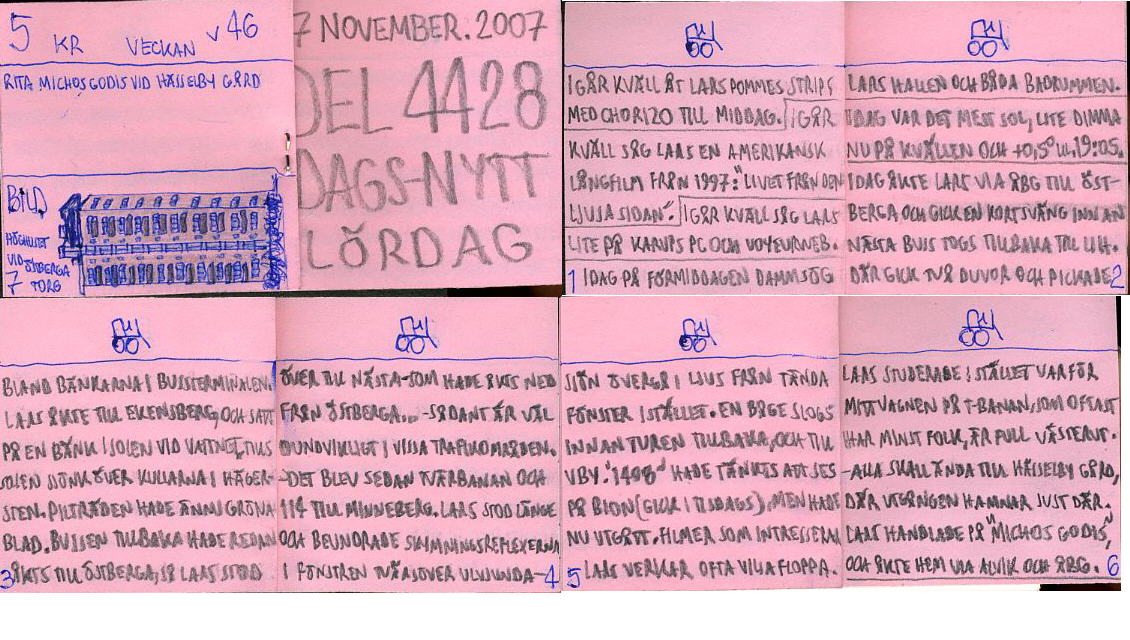 5 KR VECKAN V 46
RITA MICHOS GODIS VID HÄSSELBY GÅRD
BILD
HÖGHUSET
VID ÖSTBERGA
TORG
7
7 NOVEMBER. 2007
DEL 4428
DAGS-NYTT
LÖRDAG
IGÅR KVÄLL ÅT LARS POMMES STRIPS
MED CHORIZO TILL MIDDAG. IGÅR
KVÄLL SÅG LARS EN AMERIKANSK
LÅNGFILM FRÅN 1997: "LIVET FRÅN DEN
LJUSA SIDAN". IGÅR KVÄLL SÅG LARS
LITE PÅ KARUPS PC OCH VOYEURWEB.
1 IDAG PÅ FÖRMIDDAGEN DAMMSÖG
LARS HALLEN OCH BÅDA BADRUMMEN.
IDAG VAR DET MEST SOL, LITE DIMMA
NU PÅ KVÄLLEN OCH +0,5° kl. 19:05.
IDAG ÅKTE LARS VIA ÅBG TILL ÖST-
BERGA OCH GICK EN KORT SVÄNG INNAN
NÄSTA BUSS TOGS TILLBAKA TILL LIH.
DÄR GICK TVÅ DUVOR OCH PICKADE 2
BLAND BÄNKARNA I BUSSTERMINALEN.
LARS ÅKTE TILL EKENSBERG, OCH SATT
PÅ EN BÄNK I SOLEN VID VATTNET, TILLS
SOLEN SJÖNK ÖVER KULLARNA I HÄGER-
STEN. PILTRÄDEN HADE ÄNNU GRÖNA
BLAD. BUSSEN TILLBAKA HADE REDAN
3 ÅKTS TILL ÖSTBERGA, SÅ LARS STOD
ÖVER TILL NÄSTA-SOM HADE ÅKTS NED
FRÅN ÖSTBERGA... -SÅDANT ÄR VÄL
OUNDVIKLIGT I VISSA TRAFIKOMRÅDEN.
-DET BLEV SEDAN TVÄRBANAN OCH
114 TILL MINNEBERG. LARS STOD LÄNGE
OCH BEUNDRADE SKYMNINGSREFLEXERNA
I FÖNSTREN TVÄRSÖVER ULVSUNDA- 4
SJÖN ÖVERGÅ I LJUS FRÅN TÄNDA
FÖNSTER ISTÄLLET. EN BÅGE SLOGS
INNAN TUREN TILLBAKA, OCH TILL
VBY. "1408" HADE TÄNKTS ATT SES
PÅ BION (GICK I TISDAGS), MEN HADE
NU UTGÅTT. FILMER SOM INTRESSERAR
5 LARS VERKAR OFTA VILJA FLOPPA.
LARS STUDERADE ISTÄLLET VARFÖR
MITTVAGNEN PÅ T-BANAN, SOM OFTAST
HAR MINST FOLK, ÄR FULL VÄSTERUT.
-ALLA SKALL ÄNDA TILL HÄSSELBY GÅRD,
DÄR UTGÅNGEN HAMNAR JUST DÄR.
LARS HANDLADE PÅ "MICHOS GODIS",
OCH ÅKTE HEM VIA ALVIK OCH ÅBG. 6